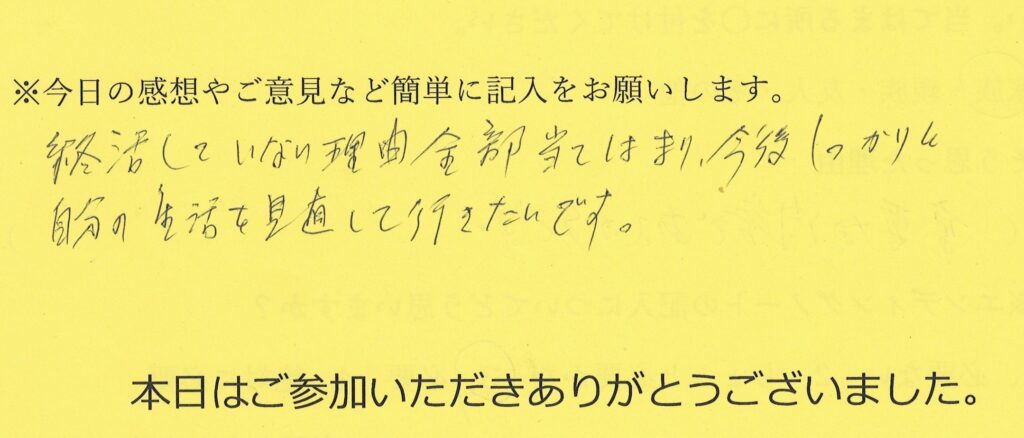 ※今日の感想やご意見など簡単に記入をお願いします。
終活していない理由全部当てはまり、今後しっかりと
自分の生活を見直して行きたいです。
本日はご参加いただきありがとうございました。